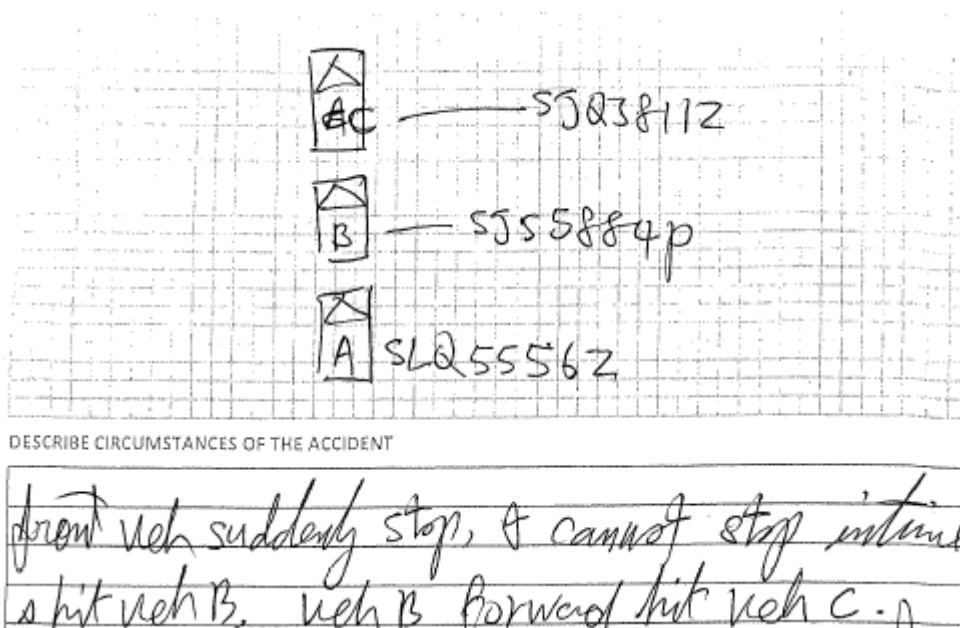 C SJQ3811Z
B SJS5884P
A SLQ5556Z
DESCRIBE CIRCUMSTANCES OF THE ACCIDENT
front veh suddenly stop, I cannot stop intime
s hit veh B. veh B forward hit veh C.